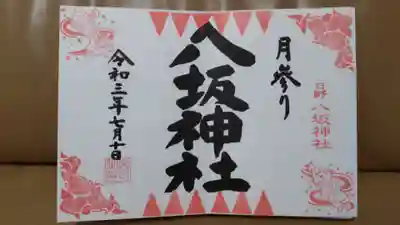 月参り
日野八坂神社
八坂神社
令和三年七月十日